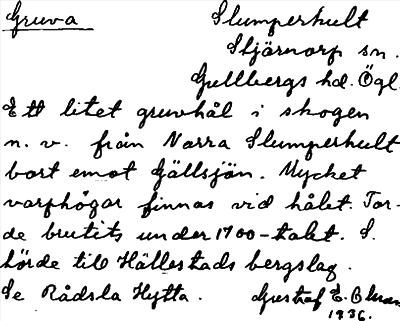 Gruva
Slumperhult
Stjärnorp sn.
Gullbergs hd. Ögl.
Ett litet gruvhål i skogen
n. v. från Norra Slumperhult
bort emot Gällsjön. Mycket
varphögar finnas vid hålet. Tor-
de brutits under 1700-talet. S.
hörde till Hällestads bergslag.
Se Rådsla Hytta. Gustaf E.
1936.